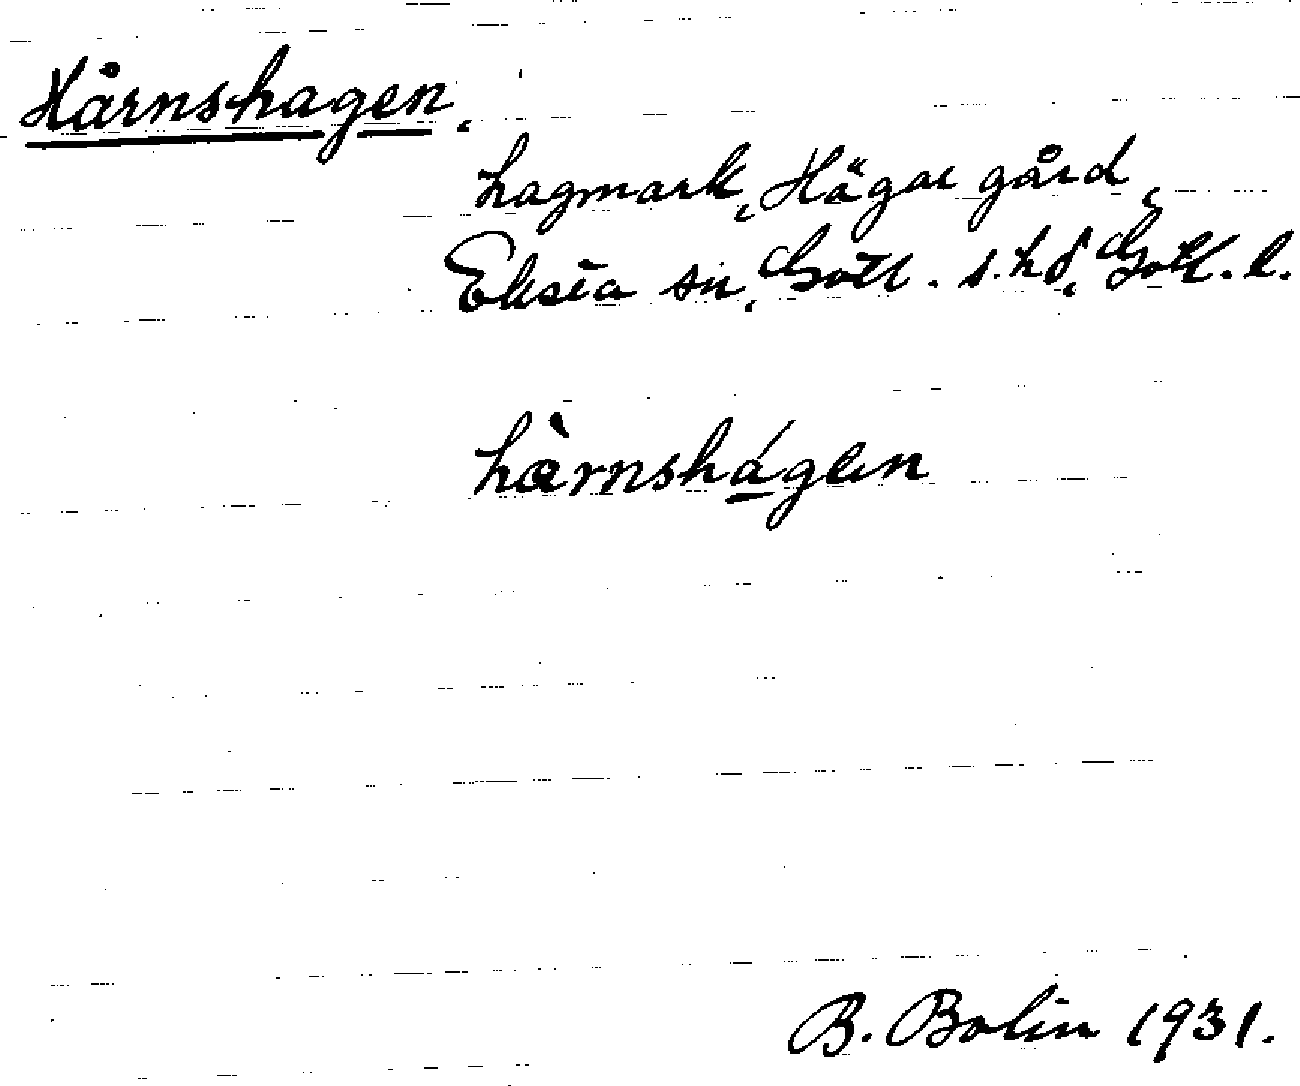 Hårnshagen.
hagmark, Hägur gård,
Eksta sn, Gotl. s. hd, Gotl. l.
hàrnshágen
B. Bolin 1931.